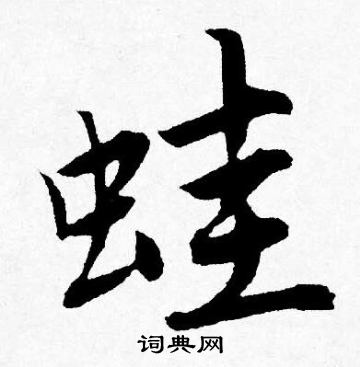 蛙
词典网